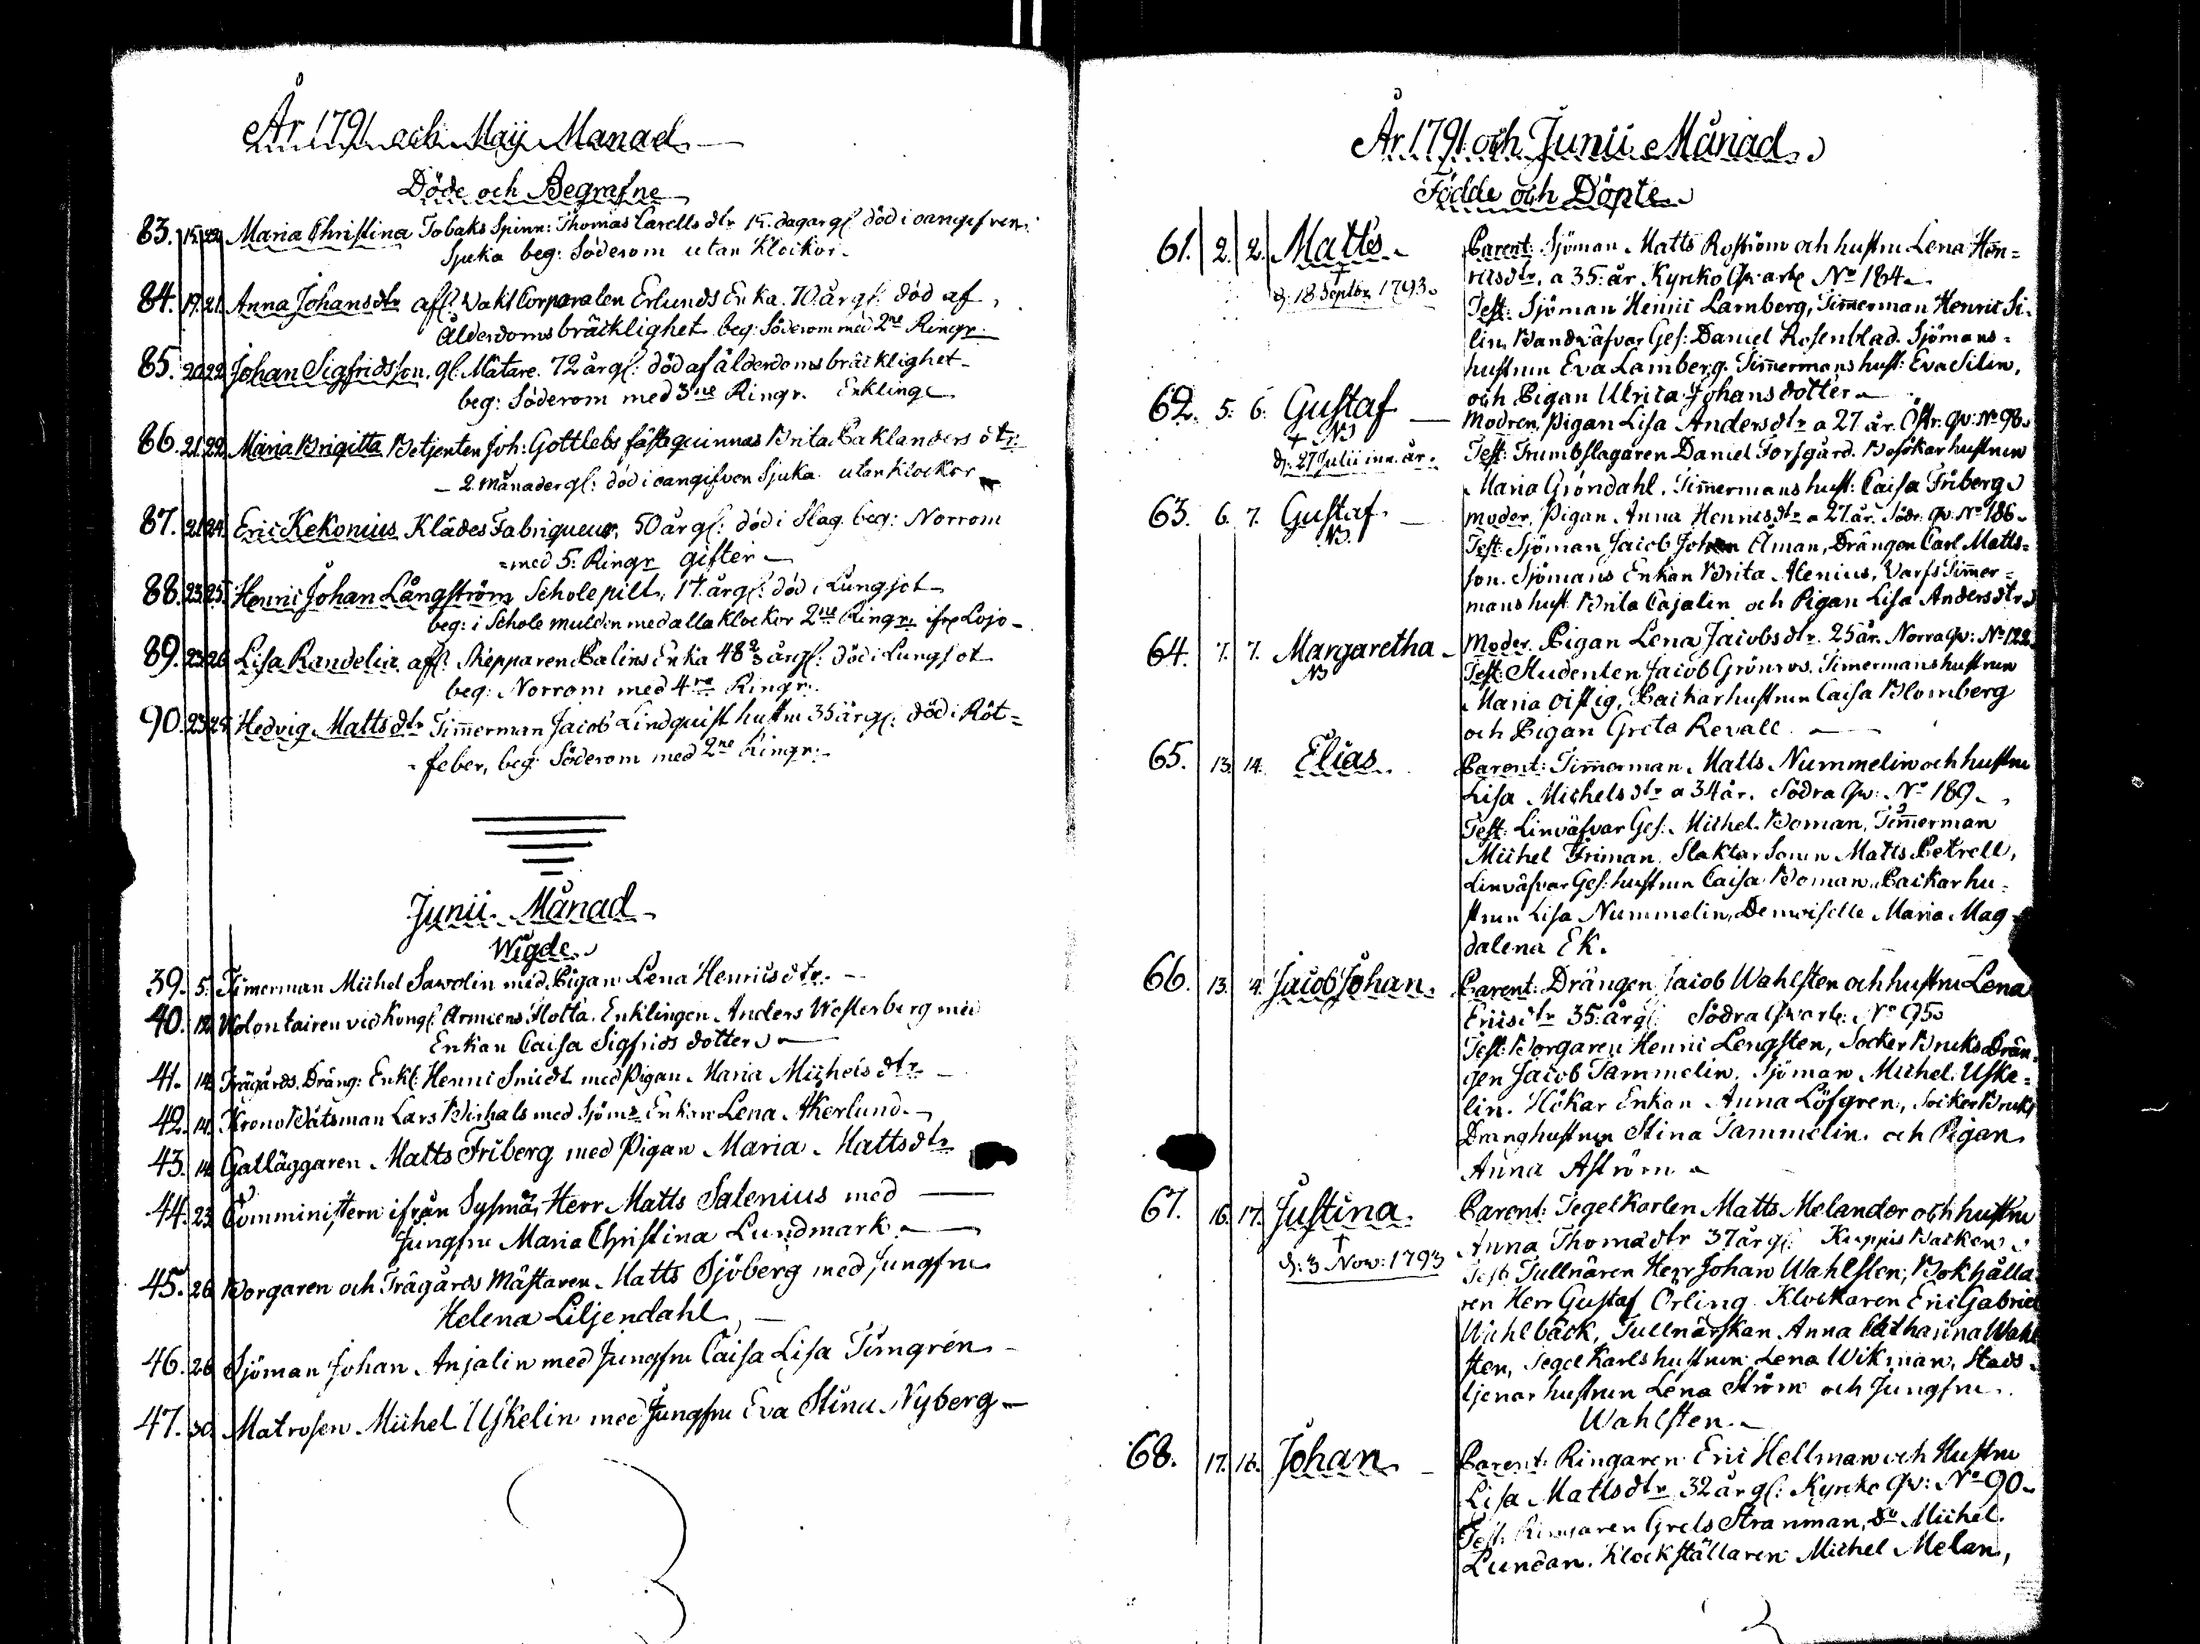 År 1791 och Maij Manad
Döde och Begrafne
83. 15. 22. Maria Christina Tobaks Spinn: Thomas Carells dtr 15. dagar gl. död i oangifven
Sjuka beg: Söderom utan Klockor.
84. 17. 21. Anna Johansdtr afl: Vakt Corporalen Erlunds Enka. 70 år gl: död af
Ålderdoms bräcklighet beg: Söderom med 2ne Ringr.
85. 20. 22. Johan Sigfridsson. gl. Mätare. 72 år gl: död af ålderdoms bräcklighet
beg: Söderom med 3ne Ringr. Enkling
86. 21. 22. Maria Brigitta Betjenten Joh: Gottlebs fästeqvinnas Brita Baklanders dtr:
2 månader gl: död i oangifven Sjuka utan Klockor
87. 21. 24. Eric Kekonius Klädes Fabriqueur, 50 år gl: död i Slag. beg: Norrom
med 5: Ringr gifter
88. 23. 25. Henric Johan Långström Scholepilt, 17. år gl: död i Lungsot
beg: i Schole mulden med alla klockor 2ne Ringr. ifr. Lojo
89. 23. 26. Lisa Randelia afl: Skepparen Palins Enka 48 2/3 år gl: död i Lungsot
beg: Norrom med 4ra Ringr.
90. 23. 28. Hedvig Mattsdtr Timmerman Jacob Lindquist hustru 35 år gl: död i Röt=
feber, beg: Söderom med 2ne Ringr.
Junii Månad
Wigde
39. 5. Timerman Michel Sawolin med Pigan Lena Henricsdtr.
40. 12. Volontairen vid Kongl Armeens Flotta. Enklingen Anders Westerberg med
Enkan Caisa Sigfrids dotter
41. 14. Trägårds Dräng: Enkl: Henric Smidt med Pigan Maria Michelsdtr
42. 14. Krono Båtsman Lars Bishals med Sjöm: Enkan Lena Åkerlund.
43. 14. Gatläggaren Matts Friberg med Pigan Maria Mattsdtr
44. 23. Comministern ifrån Sysmä, Herr Matts Salenius med
Jungfru Maria Christina Lundmark
45. 26. Borgaren och Trägårds Mästaren Matts Sjöberg med Jungfru
Helena Liljendahl
46. 26. Sjöman Johan Anjalin med Jungfru Caisa Lisa Timgrén
47. 30. Matrosen Michel Uskelin med Jungfru Eva Stina Nyberg
År 1791 och Junii Månad
Födde och Döpte
61. 2. 2. Matts Parent: Sjöman Matts Roström och hustru Lena Hen=
ricsdtr. a 35: år Kyrko Qvarte No 184
† d: 18 Septbr 1793
Test: Sjöman Henric Lamberg, Timmerman Henric Si=
lin, Bandväfvar Ges: Daniel Rosenblad. Sjömans=
hustrun Eva Lamberg. Timmermans hust: Eva Silin,
och Pigan Ulrica Johans dotter
62. 5. 6. Gustaf Modren, Pigan Lisa Andersdtr a 27. år. Östr. qv: No 98
† NB
d: 27 Julii inn. år. Test: Trumbslagaren Daniel Forsgård. Besökar hustrun
Maria Gröndahl. Timmermans hust: Caisa Friberg
63. 6. 7. Gustaf Moder, Pigan Anna Henricsdtr a 27. år. Södr. qv: No 186
NB. Test: Sjöman Jacob Johan Åman, Drängen Carl Matts=
son. Sjömans Enkan Brita Alenius, Varfs Timer=
mans hust. Brita Cajalin och Pigan Lisa Andersdtr
64. 7. 7. Margaretha Moder. Pigan Lena Jacobsdtr 25 år. Norra Qv: No 122
NB Test: Studenten Jacob Grönros. Timermans hustrun
Maria Oistig, Backar hustrun Caisa Blomberg
och Pigan Greta Revall
65. 13. 14. Elias Parent: Timerman Matts Nummelin och hustru
Lisa Michelsdtr a 34 år. Södra Qv: No 189
Test: Linväfvar Ges: Michel Boman, Timmerman
Michel Friman. Slaktar Sonen Matts Petrell,
Linväfvar Ges: hustrun Caisa Boman. Backar hu=
strun Lisa Nummelin, Demoiselle Maria Mag=
dalena Ek.
66. 13. 14. Jacob Johan. Parent: Drängen Jacob Wahlsten och hustru Lena
Ericsdtr 35: år gl: Södra Qvarte: No 95
Test: Borgaren Henric Lengsten, Socker Bruks Drän=
gen Jacob Tammelin. Sjöman Michel Uske=
lin. Hökar Enkan Anna Löfgren, Socker Bruks
Dränghustrun Stina Tammelin. och Pigan
Anna Aström
67. 16. 17. Justina. Parent: Tegelkarlen Matts Melander och hustru
Anna Thomædtr 37 år gl: Kuppis Backen
† d: 3 Nov: 1793 Test: Tullnären Herr Johan Wahlsten, Bokhålla
ren Herr Gustaf Orling. Klockaren Eric Gabriel
Wahlbäck, Tullnärskan Anna Catharina Wahl
sten, Tegel Karls hustrun Lena Wikman, Stads=
tjenar hustrun Lena Ström och Jungfru
Wahlsten.
68. 17. 18. Johan Parent: Ringaren Eric Hellman och Hustru
Lisa Mattsdtr 32 år gl: Kyrko Qv: No 90
Test: Ringaren Grels Stranman, do Michel
Lundan. Klockställaren Michel Melan,